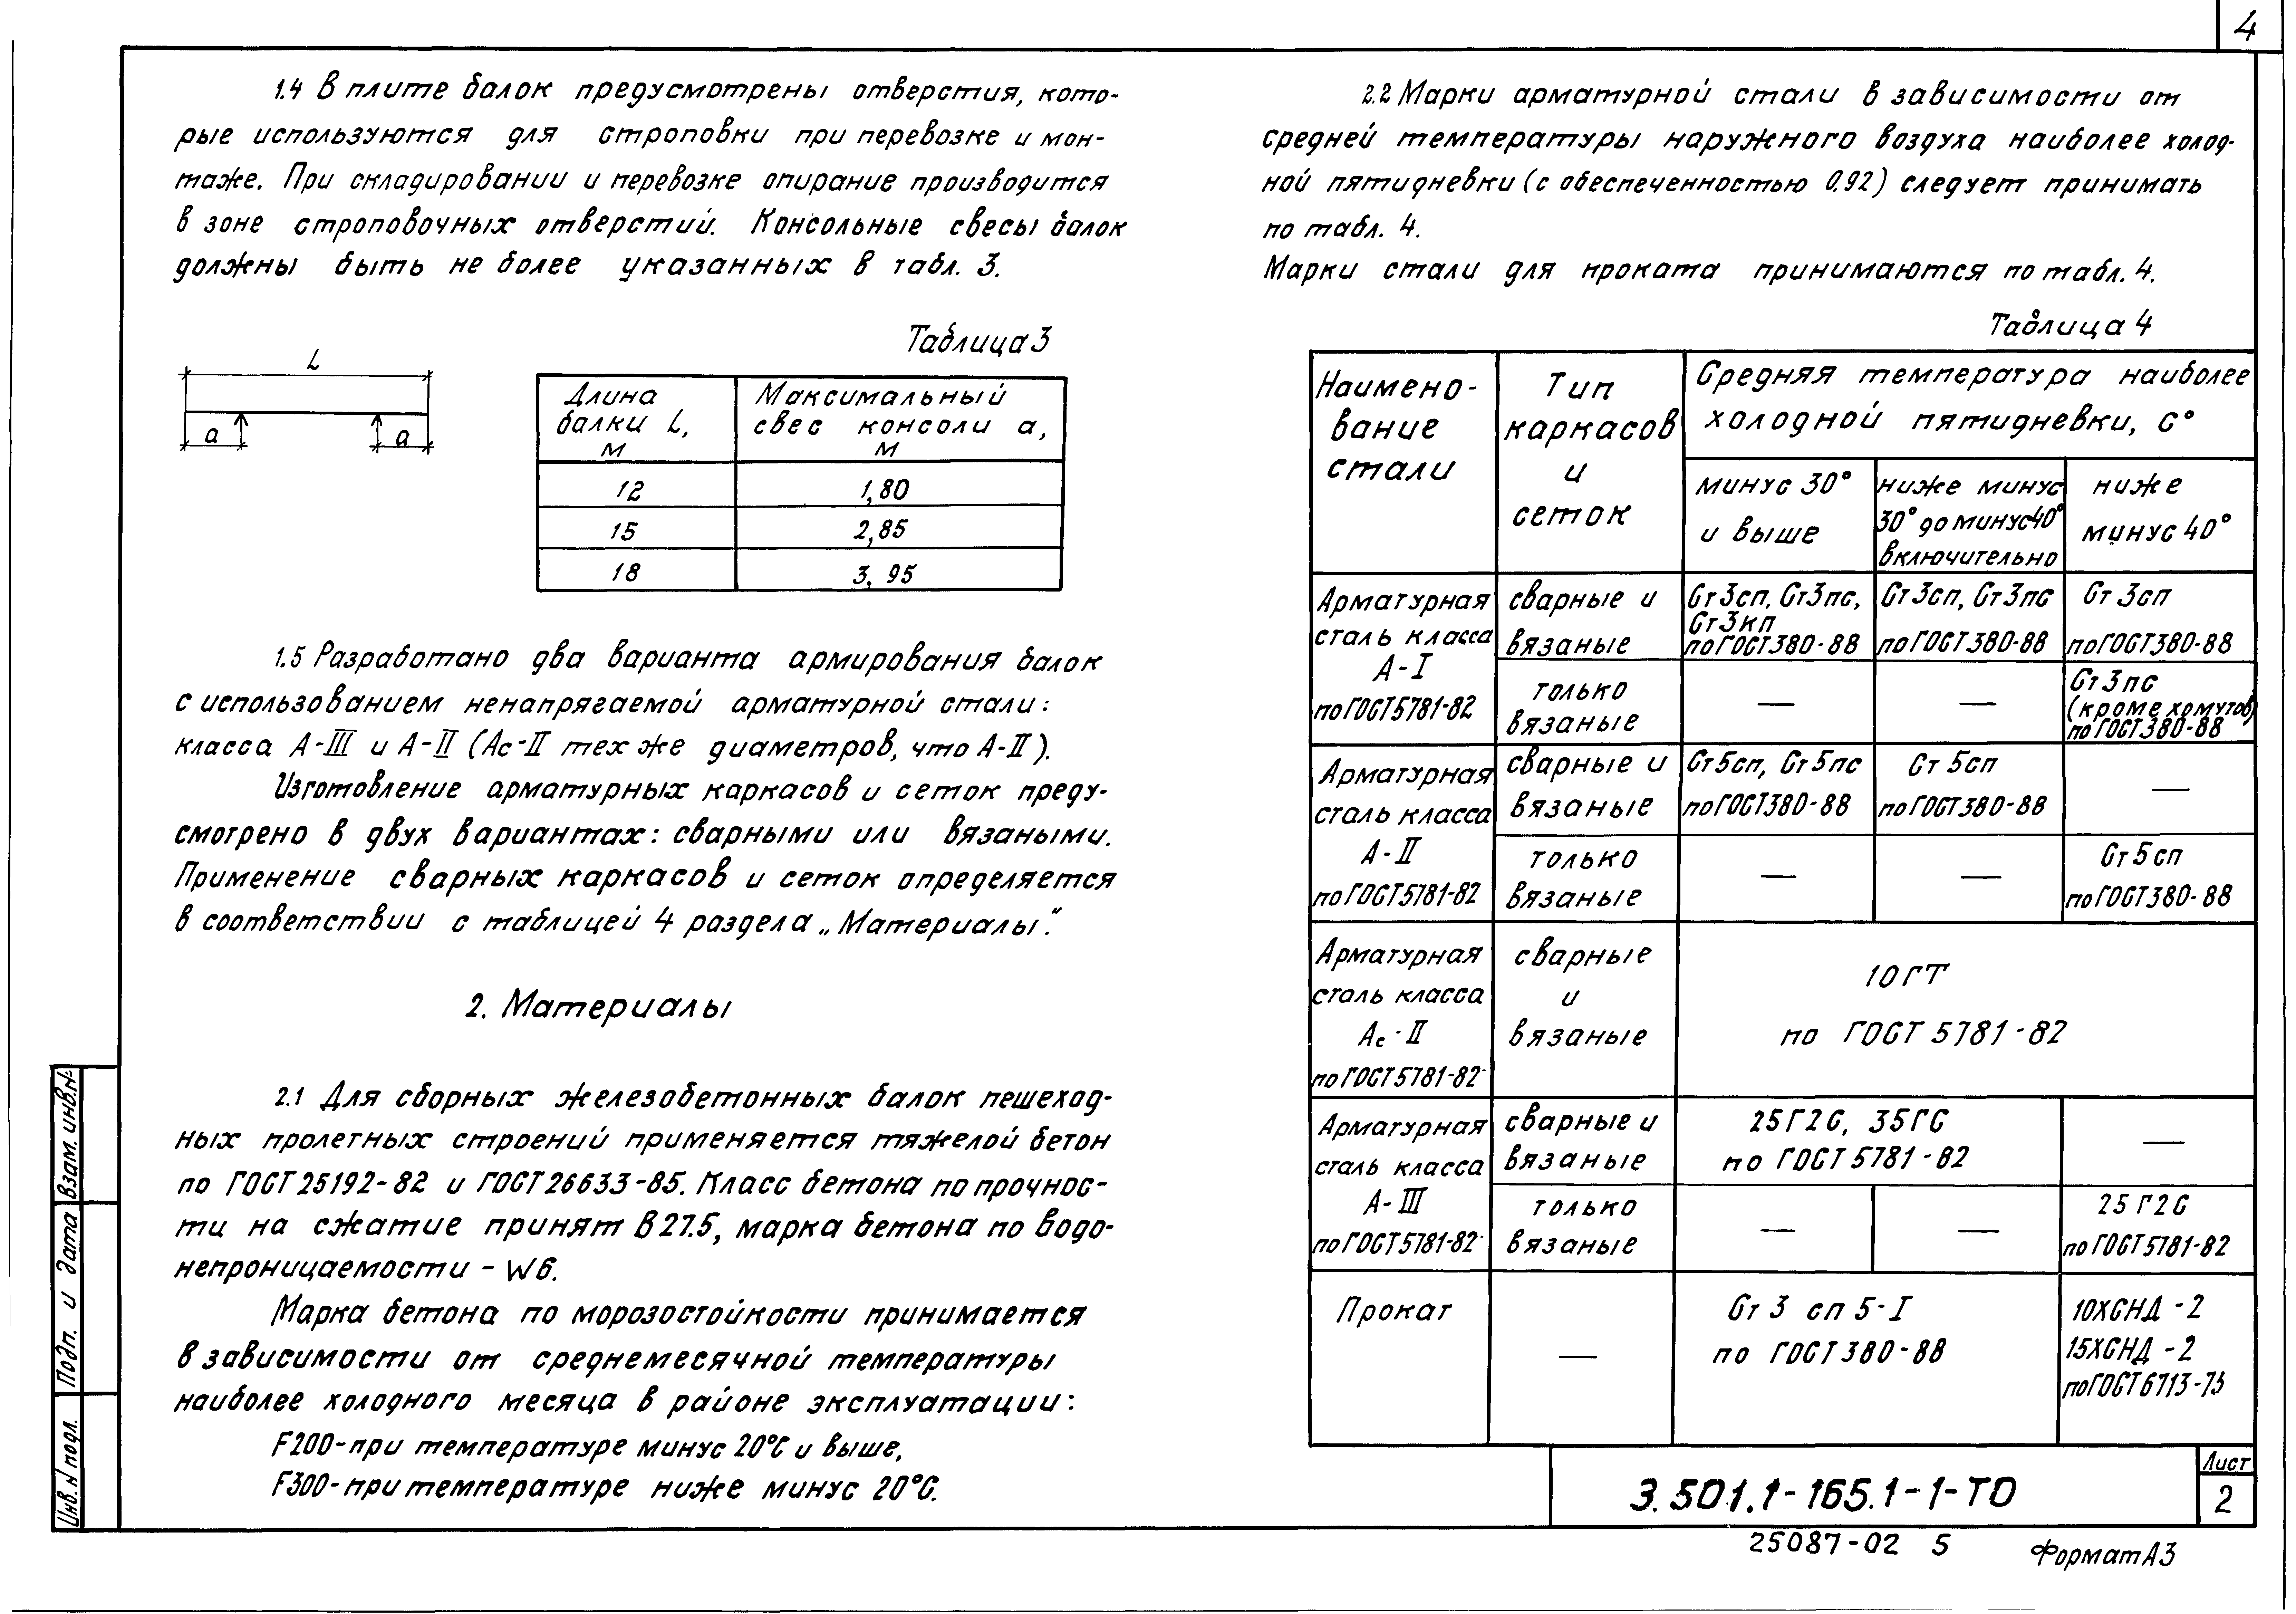 4
1.4 В плите балок предусмотрены отверстия, кото-
рые используются для строповки при перевозке и мон-
таже. При складировании и перевозке опирание производится
в зоне строповочных отверстий. Консольные свесы балок
должны быть не более указанных в табл. 3.
Таблица 3
L
a
a
Длина балки L, м
Максимальный свес консоли а, м
12
1,80
15
2,85
18
3,95
1.5 Разработано два варианта армирования балок
с использованием ненапрягаемой арматурной стали:
класса А-III и А-II (Ас-II тех же диаметров, что А-II).
Изготовление арматурных каркасов и сеток преду-
смотрено в двух вариантах: сварными или вязаными.
Применение сварных каркасов и сеток определяется
в соответствии с таблицей 4 раздела „Материалы“.
2. Материалы
2.1 Для сборных железобетонных балок пешеход-
ных пролетных строений применяется тяжелой бетон
по ГОСТ 25192-82 и ГОСТ 26633-85. Класс бетона по прочнос-
ти на сжатие принят В27.5, марка бетона по водо-
непроницаемости - W6.
Марка бетона по морозостойкости принимается
в зависимости от среднемесячной температуры
наиболее холодного месяца в районе эксплуатации:
F200-при температуре минус 20°С и выше,
F300-при температуре ниже минус 20°С.
2.2 Марки арматурной стали в зависимости от
средней температуры наружного воздуха наиболее холод-
ной пятидневки (с обеспеченностью 0,92) следует принимать
по табл. 4.
Марки стали для проката принимаются по табл. 4.
Таблица 4
Наимено-
вание
стали
Тип
каркасов
и
сеток
Средняя температура наиболее
холодной пятидневки, С°
минус 30°
и выше
ниже минус
30° до минус 40°
включительно
ниже
минус 40°
Арматурная
сталь класса
А-I
по ГОСТ 5781-82
сварные и
вязаные
Ст3сп, Ст3пс,
Ст3кп
по ГОСТ 380-88
Ст3сп, Ст3пс
по ГОСТ 380-88
Ст 3сп
по ГОСТ 380-88
только
вязаные
—
—
Ст 3пс
(кроме хомутов)
по ГОСТ 380-88
Арматурная
сталь класса
А-II
по ГОСТ 5781-82
сварные и
вязаные
Ст5сп, Ст5пс
по ГОСТ 380-88
Ст 5сп
по ГОСТ 380-88
—
только
вязаные
—
—
Ст 5сп
по ГОСТ 380-88
Арматурная
сталь класса
Ас-II
по ГОСТ 5781-82
сварные
и
вязаные
10ГТ
по ГОСТ 5781-82
Арматурная
сталь класса
А-III
по ГОСТ 5781-82
сварные и
вязаные
25Г2С, 35ГС
по ГОСТ 5781-82
—
только
вязаные
—
—
25Г2С
по ГОСТ 5781-82
Прокат
—
Ст 3 сп 5-I
по ГОСТ 380-88
10ХСНД-2
15ХСНД-2
по ГОСТ 6713-75
Взам. инв.№
Подп. и дата
Инв. N подл.
3.501.1-165.1-1-ТО
Лист
2
25087-02 5
Формат А3